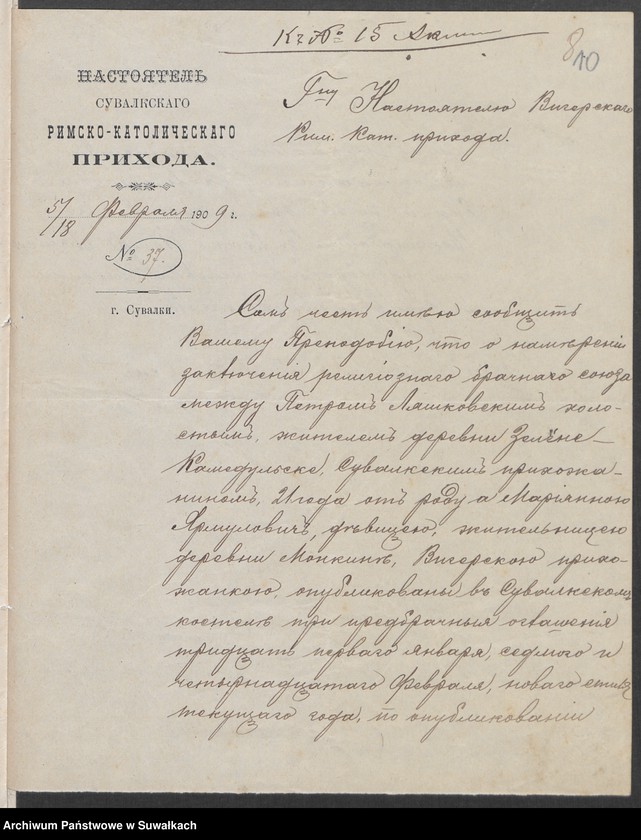 Къ № 15 Акта
8
10
НАСТОЯТЕЛЬ
СУВАЛКСКАГО
РИМСКО-КАТОЛИЧЕСКАГО
ПРИХОДА.
5/18 Февраля 1909 г.
№ 37.
г. Сувалки.
Гну Настоятелю Вигерскаго
Рим. Кат. прихода.
Симъ честь имѣю сообщить
Вашему Преподобію, что о намѣреніи
заключенія религіознаго брачнаго союза
между Петромъ Ляшковскимъ холо-
стымъ, жителемъ деревни Зелёне-
Камедульске, Сувалкскимъ прихожа-
ниномъ, 21 года отъ роду а Маріянною
Ярмуловичъ, дѣвицею, жительницею
деревни Монкинь, Вигерскою прихо-
жанкою, опубликованы въ Сувалкскомъ
костелѣ три предбрачныя оглашенія
тридцать перваго Января, седьмого и
четырнадцатаго Февраля, новаго стиля
текущаго года, по опубликованіи
Archiwum Państwowe w Suwałkach